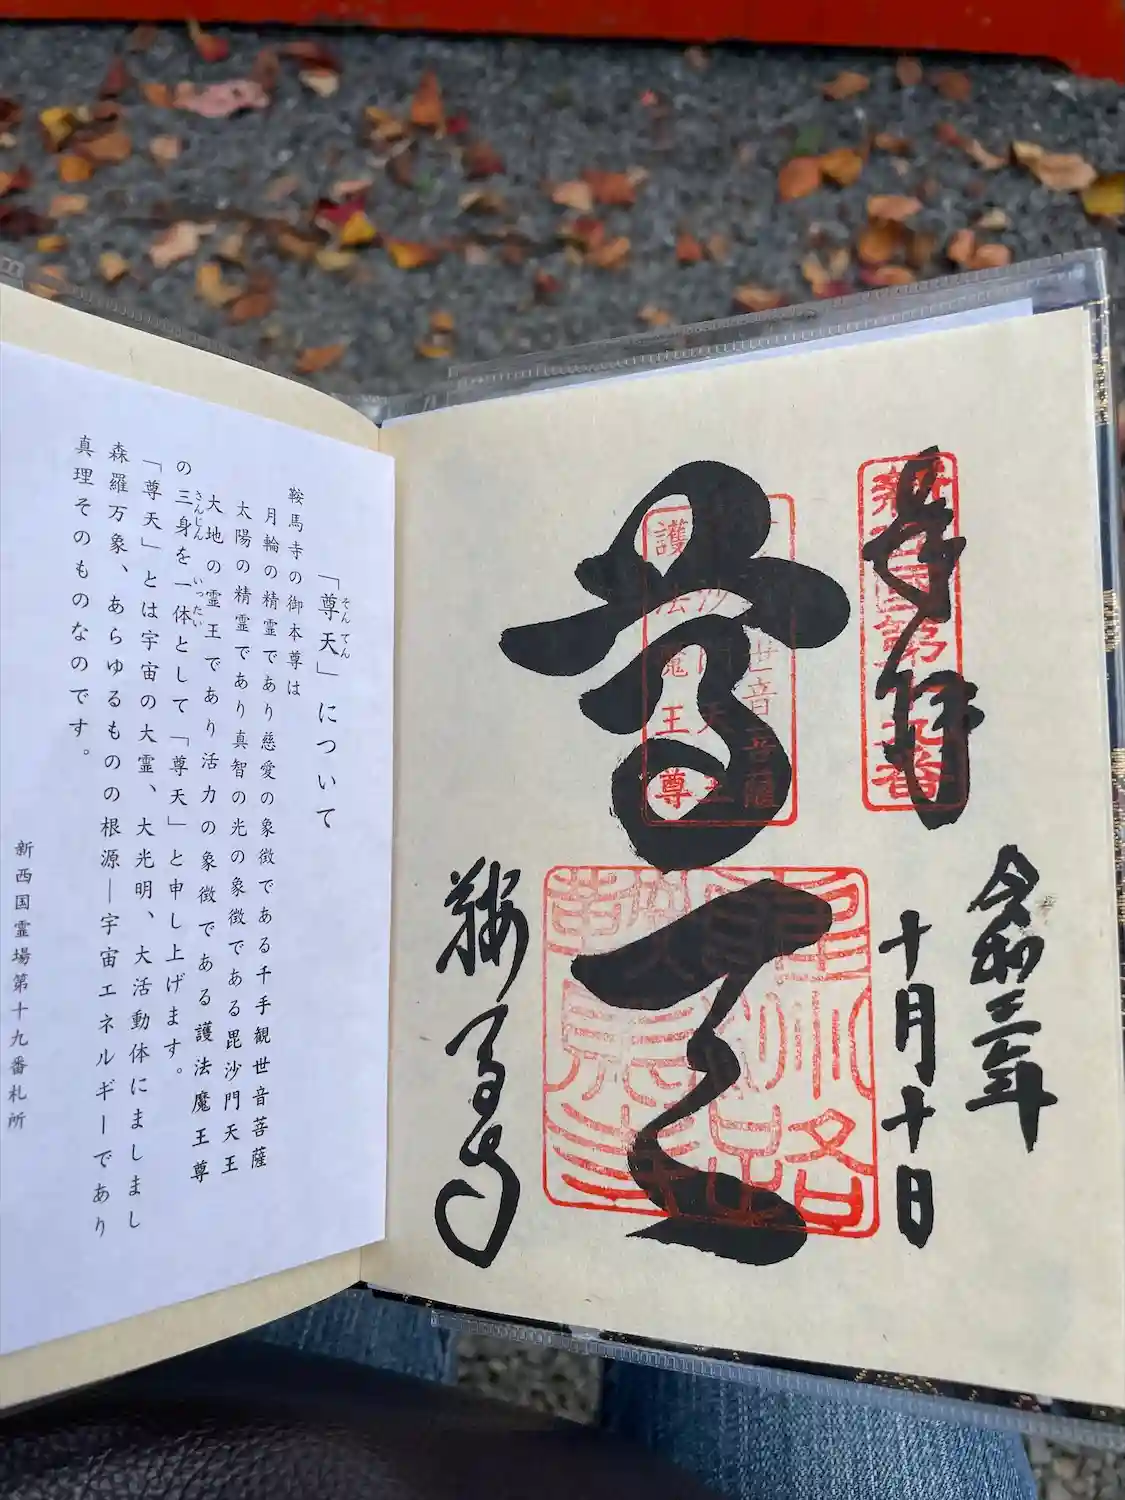 奉拝
新西國第十九番
令和三年
十月十日
尊天
護法魔王尊
鞍馬寺
「尊天」について
そんてん
鞍馬寺の御本尊は
月輪の精霊であり慈愛の象徴である千手観世音菩薩
太陽の精霊であり真智の光の象徴である毘沙門天王
大地の霊王であり活力の象徴である護法魔王尊
の三身を一体として「尊天」と申し上げます。
さんじん いったい
「尊天」とは宇宙の大霊、大光明、大活動体にましまし
森羅万象、あらゆるものの根源―宇宙エネルギーであり
真理そのものなのです。
新西国霊場第十九番札所